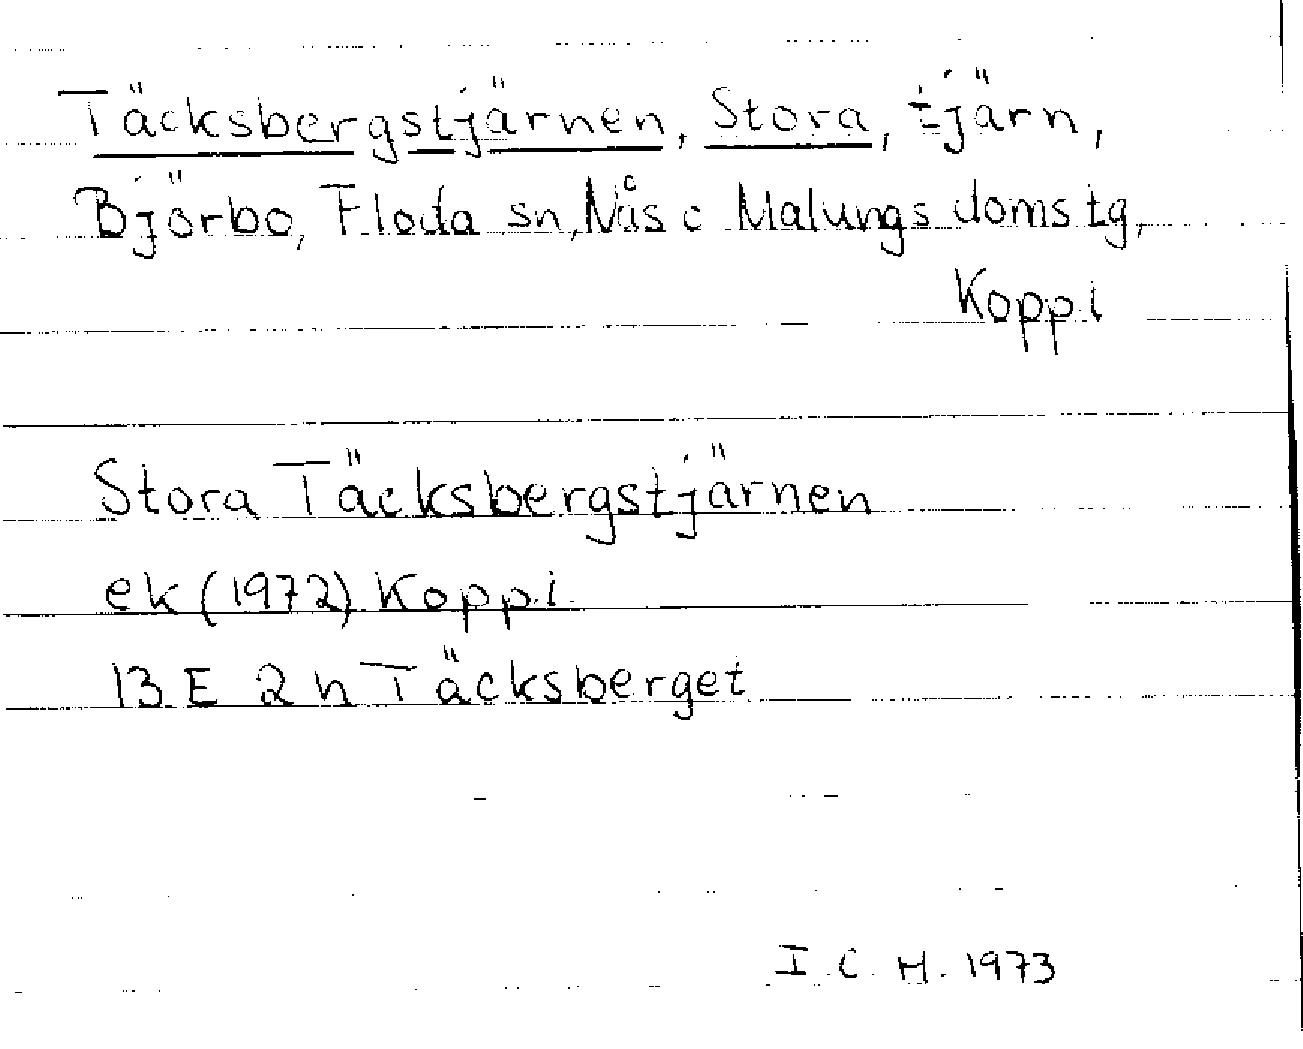 Täcksbergstjärnen, Stora, tjärn,
Björbo, Floda sn, Nås c Malungs domstg,
Koppi
Stora Täcksbergstjärnen
ek (1972) Koppi
13 E 2 h Täcksberget
I. C. H. 1973